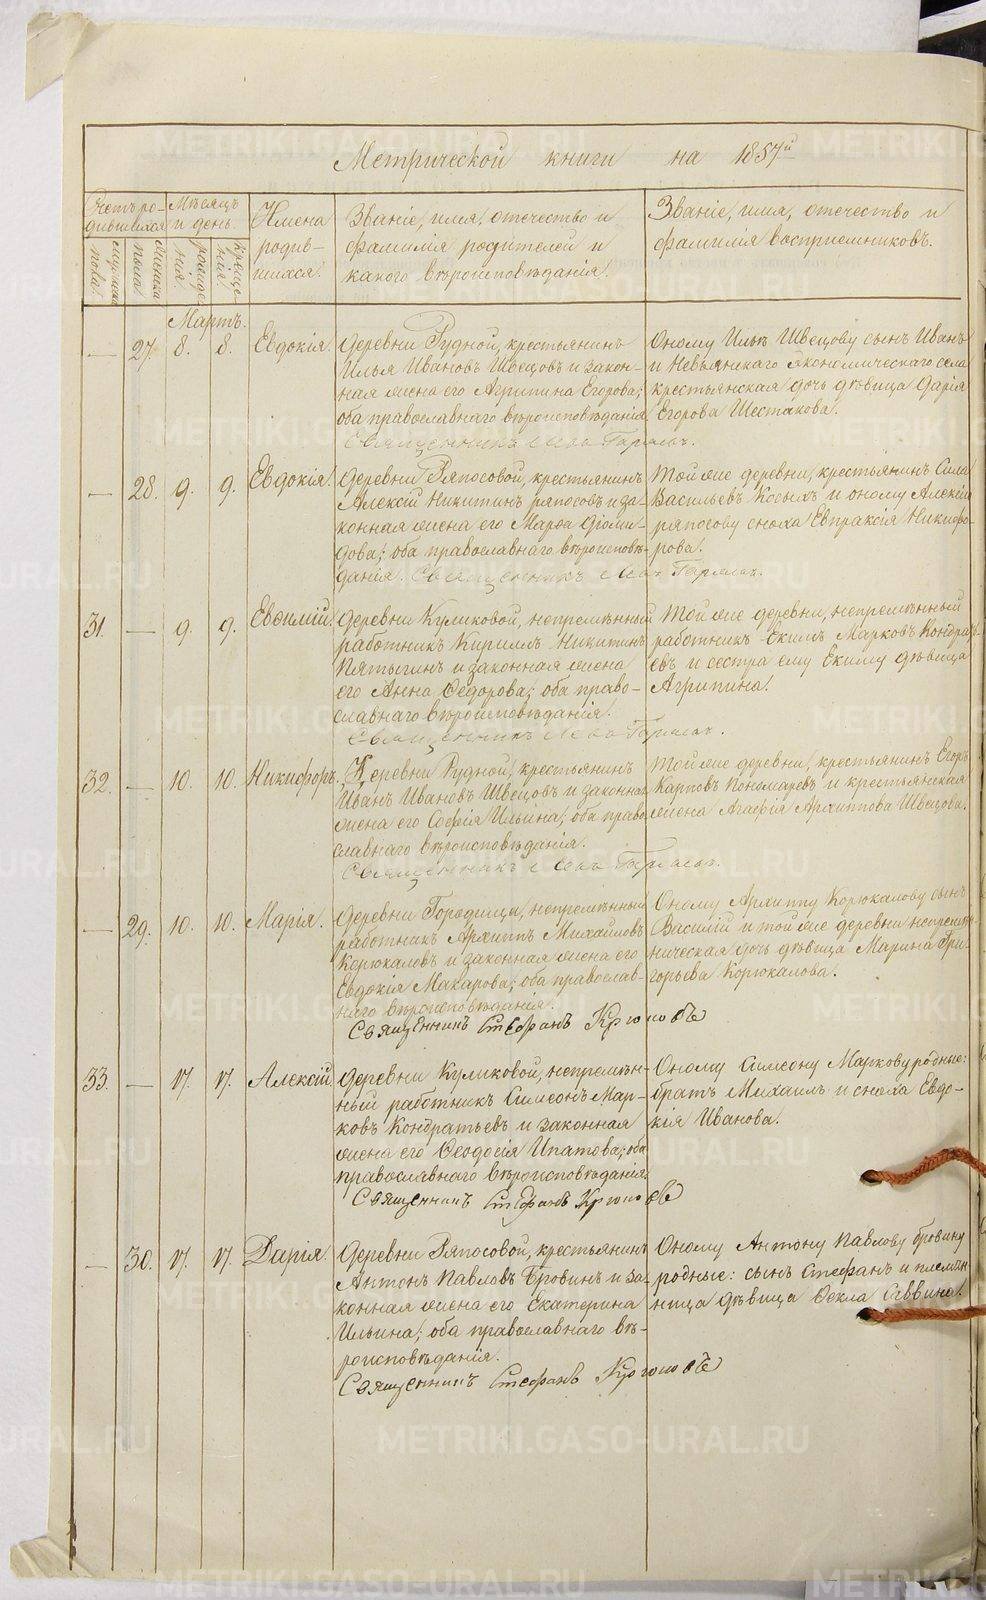 METRIKI.GASO-URAL.RU
Метрической книги на 1857й
Счетъ ро-
дившихся
Мѣсяцъ
и день.
Имена
родив-
шихся.
Званіе, имя, отечество и
фамилія родителей и
какого вѣроисповѣданія.
Званіе, имя, отечество и
фамилія восприемниковъ.
мужска
пола.
женска
пола.
рожде
нія.
креще
нія.
Мартъ.
— 27. 8. 8. Евдокія.
Деревни Рудной, крестьянинъ
Илья Ивановъ Швецовъ и закон-
ная жена его Агрипина Егорова;
оба православнаго вѣроисповѣданія
Священникъ
Оному Ильѣ Швецову сынъ Иванъ
и Невьянскаго экономическаго села
крестьянская дочь дѣвица Дарія
Егорова Шестакова.
— 28. 9. 9. Евдокія.
Деревни Ряпосовой, крестьянинъ
Алексій Никитинъ ряпосовъ и за-
конная жена его Марѳа Діоми-
дова; оба православнаго вѣроисповѣ-
данія. Священникъ
Той же деревни, крестьянинъ Сила
Васильевъ Косыхъ и оному Алексію
ряпосову сноха Евпраксія Никифо-
рова.
31. — 9. 9. Евѳимій.
Деревни Куликовой, непремѣнный
работникъ Кириллъ Никитинъ
Пятыгинъ и законная жена
его Анна Ѳедорова; оба право-
славнаго вѣроисповѣданія.
Священникъ
Той же деревни, непремѣнный
работникъ Екимъ Марковъ Кондрать-
евъ и сестра ему Екиму дѣвица
Агрипина.
32. — 10. 10. Никифоръ.
Деревни Рудной, крестьянинъ
Иванъ Ивановъ Швецовъ и законная
жена его Софія Ильина; оба право-
славнаго вѣроисповѣданія.
Священникъ
Той же деревни, крестьянинъ Егоръ
Карповъ Пономаревъ и крестьянская
жена Агафія Архипова Швецова.
— 29. 10. 10. Марія.
Деревни Городища, непремѣнный
работникъ Архиппъ Михайловъ
Корюкаловъ и законная жена его
Евдокія Макарова; оба православ-
наго вѣроисповѣданія.
Священникъ Стефанъ
Оному Архиппу Корюкалову сынъ
Василій и той же деревни непремѣн-
ническая дочь дѣвица Марина Гри-
горьева Корюкалова.
33. — 17. 17. Алексій.
Деревни Куликовой, непремѣн-
ный работникъ Симеонъ Мар-
ковъ Кондратьевъ и законная
жена его Ѳеодосія Ипатова; оба
православнаго вѣроисповѣданія.
Священникъ Стефанъ
Оному Симеону Маркову родные:
братъ Михаилъ и сноха Евдо-
кія Иванова.
— 30. 17. 17. Дарія.
Деревни Ряпосовой, крестьянинъ
Антонъ Павловъ Бровинъ и за-
конная жена его Екатерина
Ильина; оба православнаго вѣ-
роисповѣданія.
Священникъ Стефанъ
Оному Антону Павлову бровину
родные: сынъ Стефанъ и племян-
ница дѣвица Ѳекла Саввина.